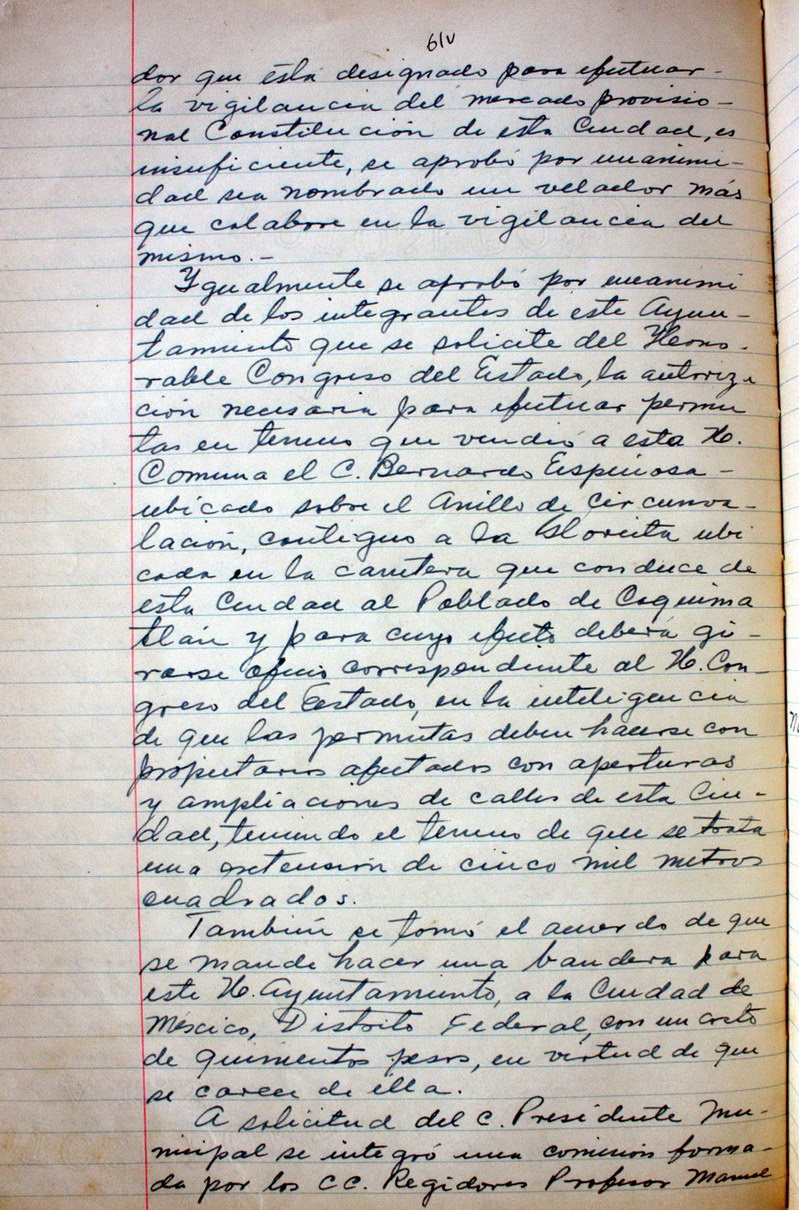 61v
dor que ésta designado para efectuar-
la vigilancia del mercado provisio-
nal Constitución de esta Ciudad, es
insuficiente, se aprobó por unanimi-
dad sea nombrado un velador más
que colabore en la vigilancia del
mismo.-
Ygualmente se aprobó por unanimi
dad de los integrantes de este Ayun-
tamiento que se solicite del Hono-
rable Congreso del Estado, la autoriza
ción necesaria para efectuar permu
tas en terreno que vendió a esta H.
Comuna el C. Bernardo Espinosa-
ubicado sobre el Anillo de Circunva-
lación, contiguo a la Glorieta ubi
cada en la carretera que conduce de
esta Ciudad al Poblado de Coquima
tlán y para cuyo efecto deberá gi-
rarse oficio correspondiente al H. Con-
greso del Estado, en la inteligencia
de que las permutas deben hacerse con
propietarios afectados con aperturas
y ampliaciones de calles de esta Ciu-
dad, teniendo el terreno de que se trata
una extensión de cinco mil metros
cuadrados.
También se tomó el acuerdo de que
se mande hacer una bandera para
este H. Ayuntamiento, a la Ciudad de
México, Distrito Federal, con un costo
de quinientos pesos, en virtud de que
se carece de élla.
A solicitud del C. Presidente Mu-
nicipal se integró una comisión forma-
da por los CC. Regidores Profesor Manuel